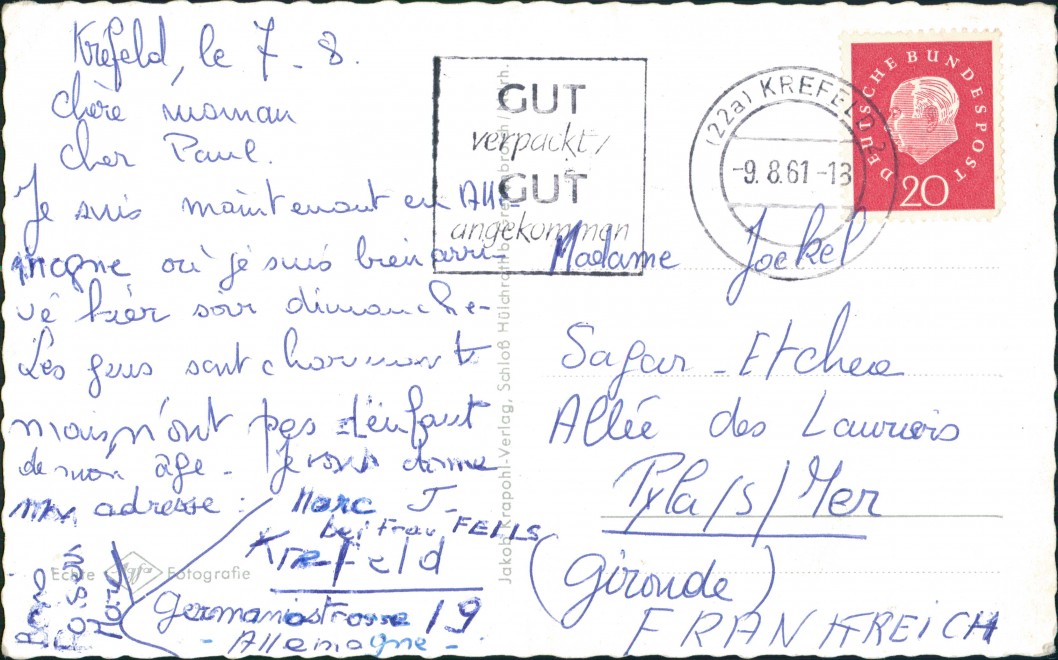 Kréfeld, le 7 - 8.
Chère maman
cher Paul.
Je suis maintenant en Alle-
magne où je suis bien arri-
vé hier soir dimanche-
Les gens sont charmant
mais n'ont pas d'enfant
de mon âge - Je vous donne
mon adresse :
Marc J-
bei Frau FELLS
Krefeld
Germaniastrasse 19.
- Allemagne -
Bons
Baisers
Marc
Echte Agfa Fotografie
Jakob Krapohl-Verlag, Schloß Hülchrath bei Grevenbroich/Erh.
GUT
verpackt/
GUT
angekommen
(22a) KREFELD 2
-9.8.61-18
DEUTSCHE BUNDESPOST
20
Madame Jockel
Sagar-Etchea
Allée des Lauriers
Pyla/s/Mer
(Gironde)
FRANKREICH